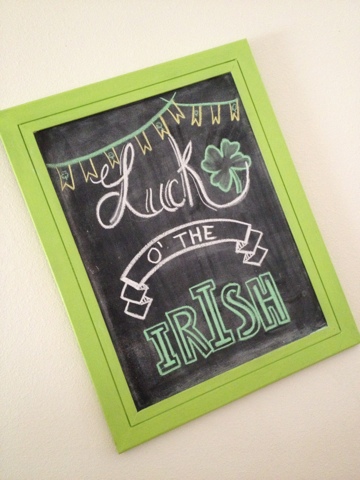 Luck
O' THE
IRISH